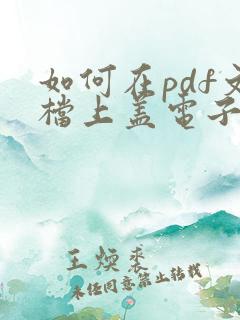 如何在pdf文
檔上蓋電子
王煐裘
未經同意禁止轉載